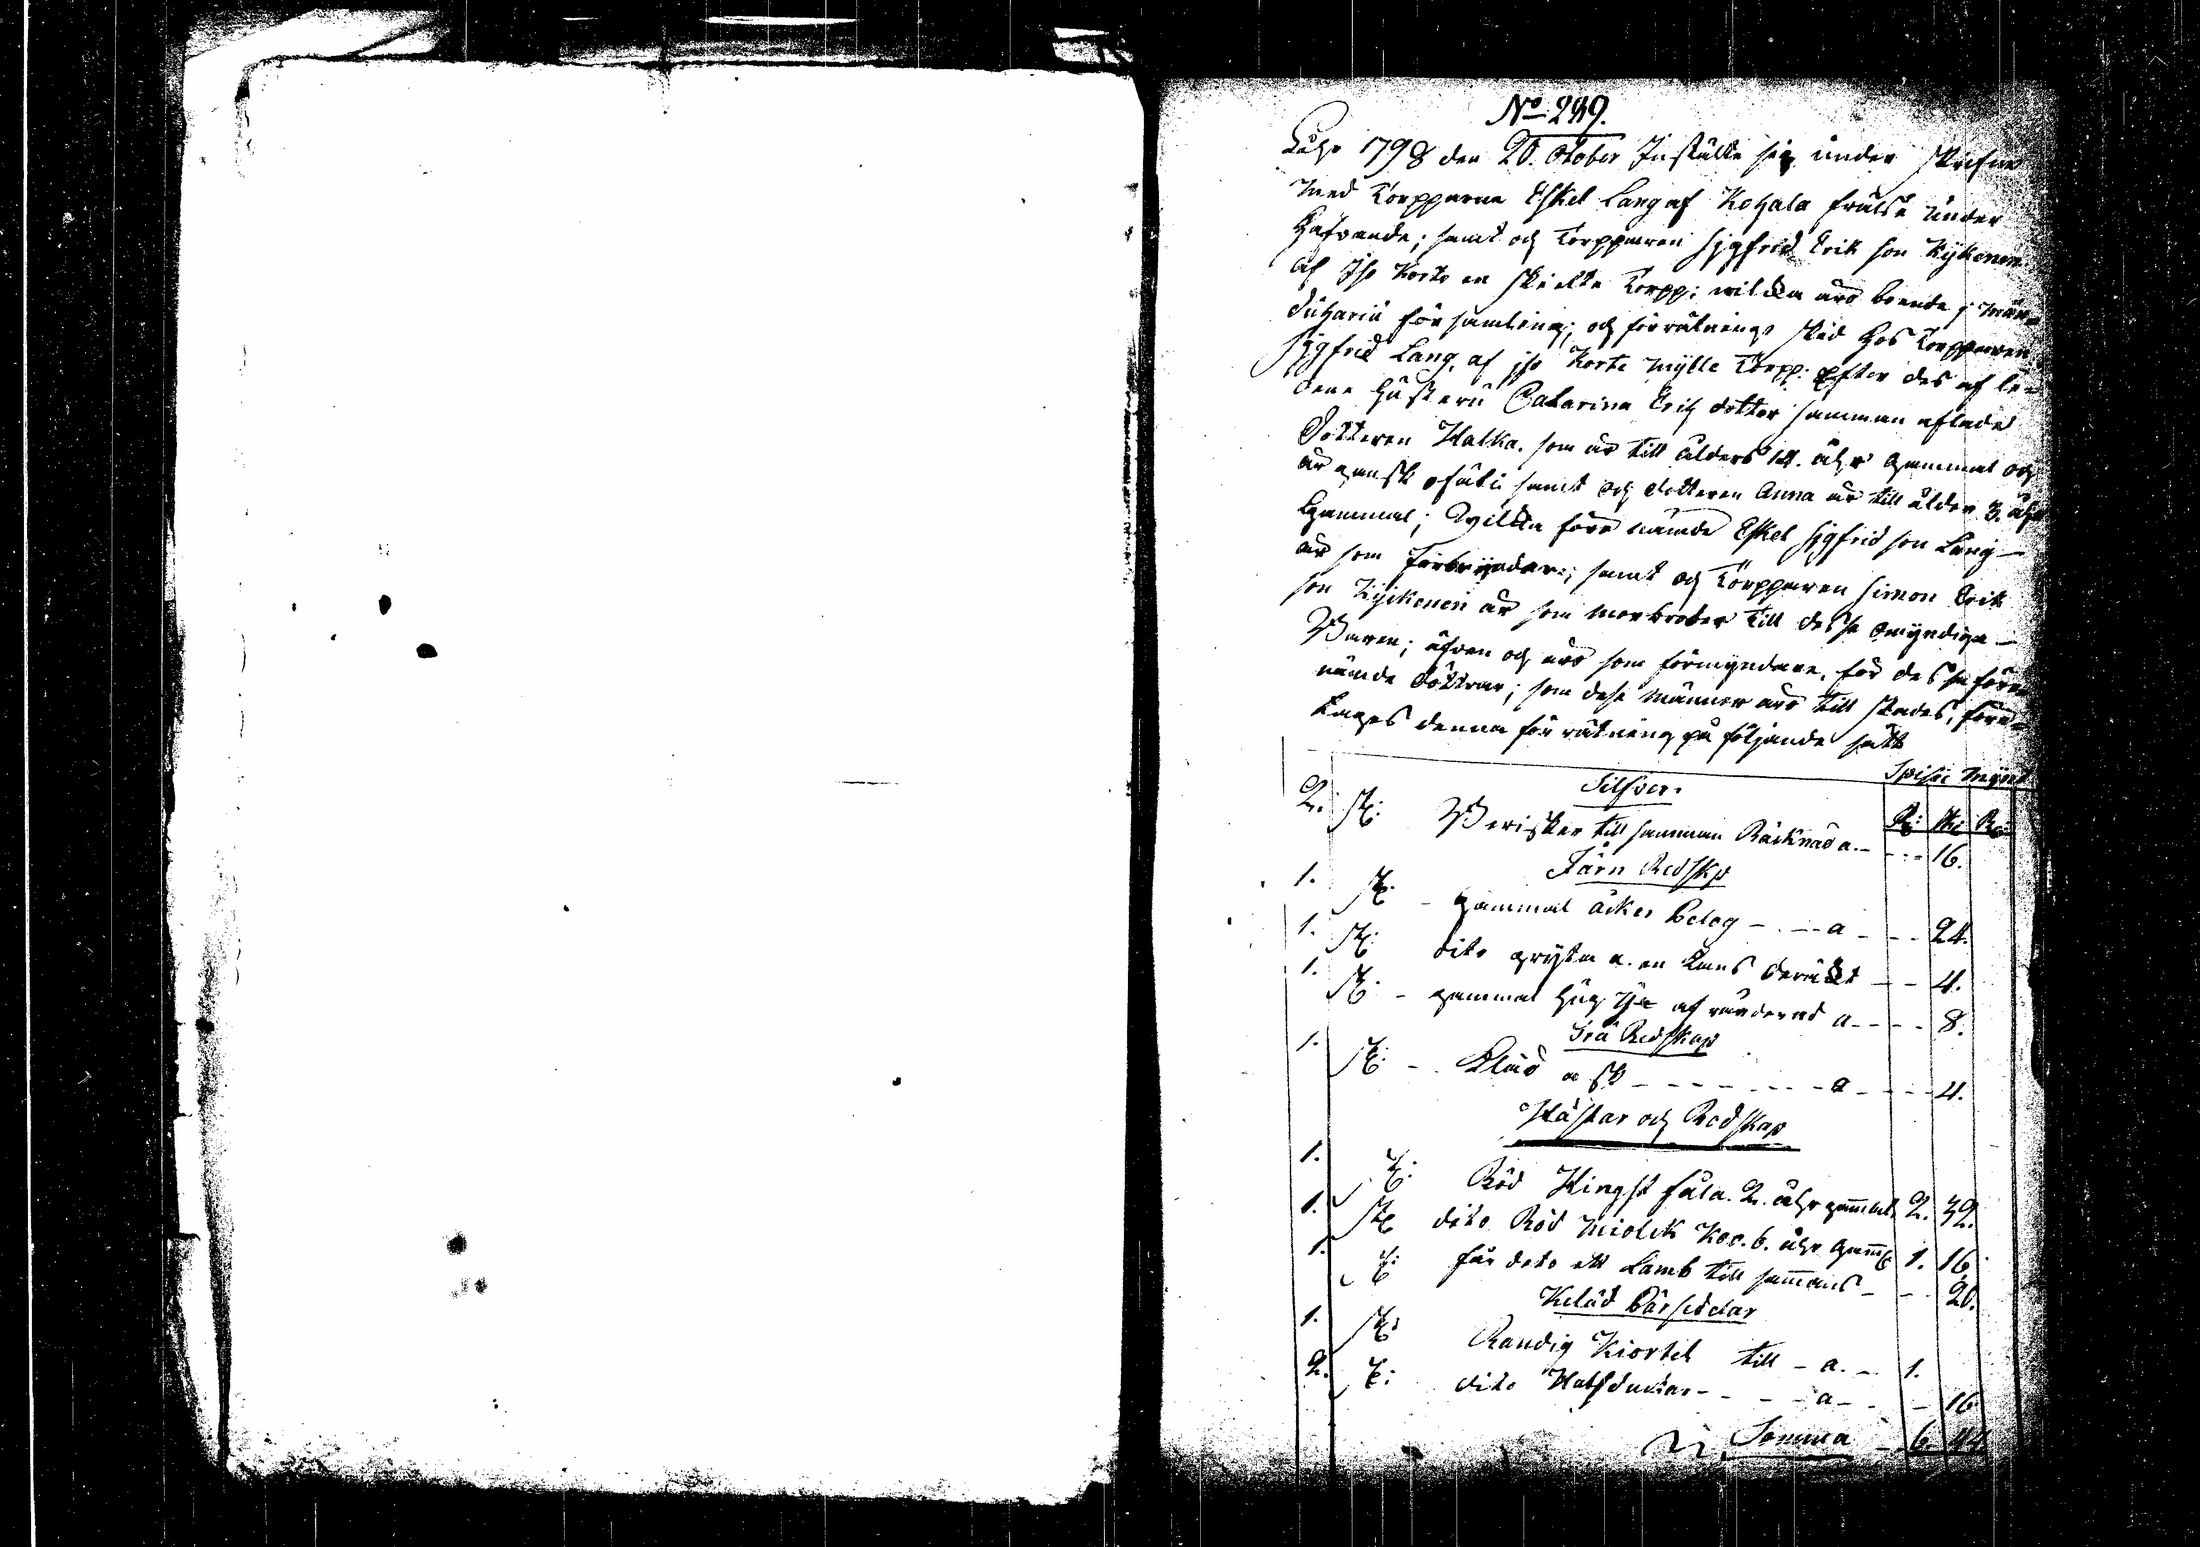 No 299.
Åhr 1798 den 20. Otober Instälte sig under skrifne
med Torpparne Eskel Lang af Kohala frälse under
Hafvande; samt og Torpparen Sigfred Erik son Kykonen
af Iso Korte en skielte Torpp; wilcka äro boende i Män-
duharju församling; og förrätnings sked hos Torpparen
Sigfrid Lang, af iso Korte mylle Torpp: Efter des af le-
dene Hustru Catarina Erik dotter samman aflade
Dotteren Walka. som är till ålders 14. åhr gammal og
är gansk ofäli samt og dotteren Anna är till ålder 3. åhr
Gammal; wilcka före nämde Eskel Sigfrid son Lang
är som Farbryder; samt og Torpparen Simon Erik
son Kyikonen är som morbroder till dessa omyndiga
Baren; äfven og äro som förmyndare, för dessa före
nämde döttrar; som dese männer äro till stades, före-
tages denna för rätning på följande sätt
Spisie mynt
Silfver.
R: sk: R:
2. st: Brisker till samman Räcknad a. 16.
Järn Redskp
1. st: gammal åcker belog a 24.
1. st: dito gryta a. en Kans deräkt 4.
1. st: gammal Hug yxe af vardernd a 8.
Trä Redskap
1. st: Kläd a sk a 4.
Hästar og Redskap
1. st: Röd Hingst fåla. 2. åhr gammal 2. 32.
1. st: dito Röd miolck Koo. 6. åhr gaml 1. 16.
1. st: får dito ett Lamb till sammans 20.
Kläd Pärsedelar
1. st: Randig Kiortel till a. 1.
2. st: dito Halsdukar a 16
Somma 6 44